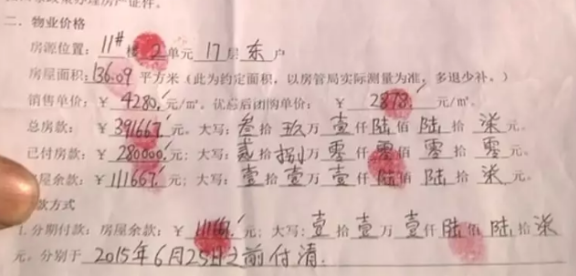 二、物业价格
房源位置：11#楼 2 单元 17 层 东 户
房屋面积：136.09 平方米（此为约定面积，以房管局实际测量为准，多退少补。）
销售单价：￥ 4280 元/㎡。优惠后团购单价：￥ 2878 元/㎡。
总房款：￥ 391667 元。大写：叁 拾 玖 万 壹 仟 陆 佰 陆 拾 柒 元。
已付房款：￥ 280000 元；大写：贰 拾 捌 万 零 仟 零 佰 零 拾 零 元。
屋余款：￥ 111667 元；大写：壹 拾 壹 万 壹 仟 陆 佰 陆 拾 柒 元。
款方式
1.分期付款：房屋余款：￥ 111667 元；大写：壹 拾 壹 万 壹 仟 陆 佰 陆 拾 柒
元，分别于 2015年6月25日之前付清.